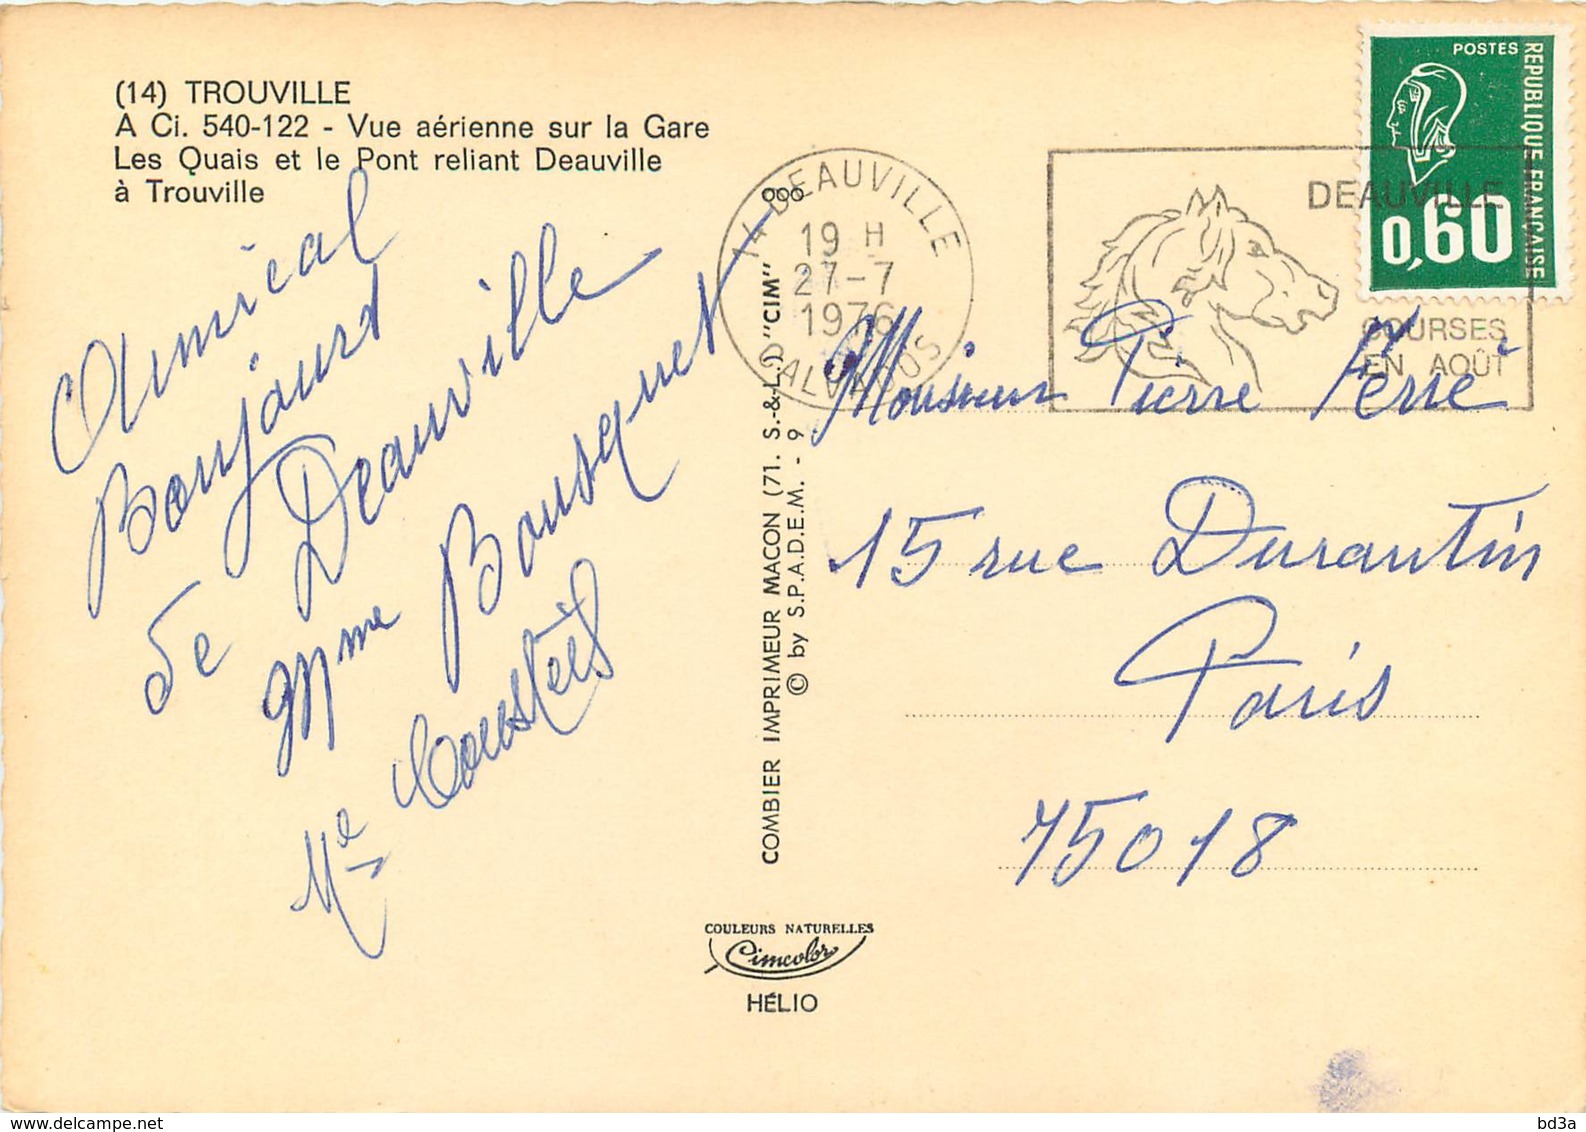 (14) TROUVILLE
A Ci. 540-122 - Vue aérienne sur la Gare
Les Quais et le Pont reliant Deauville
à Trouville
Amical
Bonjourd
de Deauville
Mme Bousquet
Mle
COMBIER IMPRIMEUR MACON (71. S.-&-L.) "CIM"
© by S.P.A.D.E.M. - 9
COULEURS NATURELLES
Cimcolor
HÉLIO
14 DEAUVILLE
19 H
27-7
1976
CALVADOS
DEAUVILLE
COURSES
EN AOÛT
POSTES
REPUBLIQUE FRANÇAISE
0,60
Monsieur Pierre Ferré
15 rue Durantin
Paris
75018
bd3a